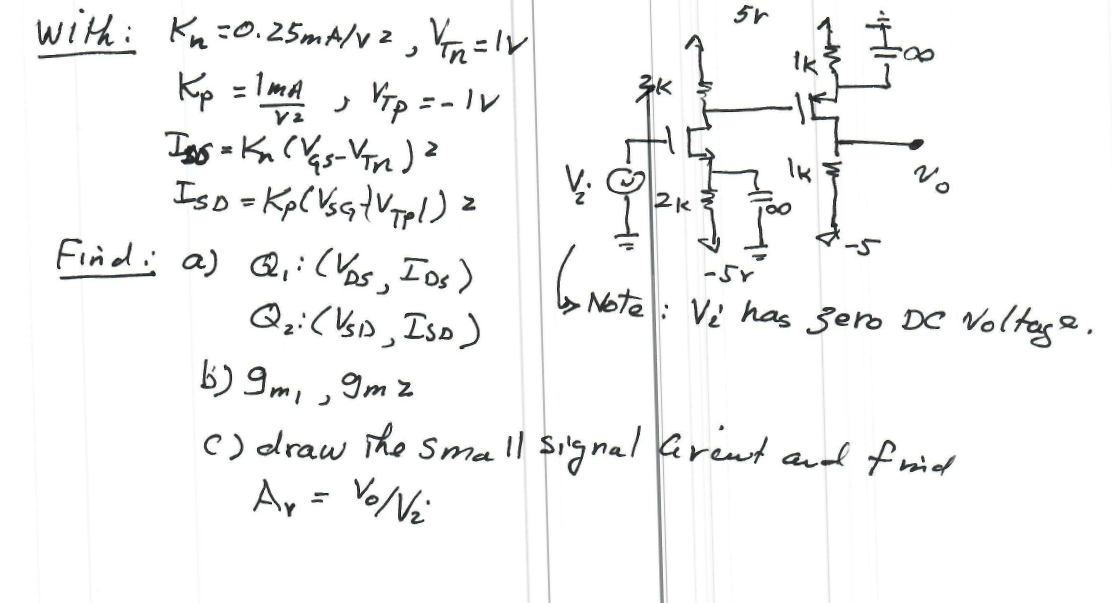 With: Kn=0.25mA/V2, VTn=1V
Kp = 1mA/V2, VTp = -1V
IDS = Kn(VGS-VTn)2
ISD = Kp(VSG+VTP1)2
Find: a) Q1: (VDS, IDS)
Q2: (VSD, ISD)
b) gm1, gm2
c) draw the small signal circuit and find
Av = Vo/Vi
5V
1k
∞
3K
Vi
2K
∞
1k
Vo
-5V
-5
Note: Vi has zero DC Voltage.